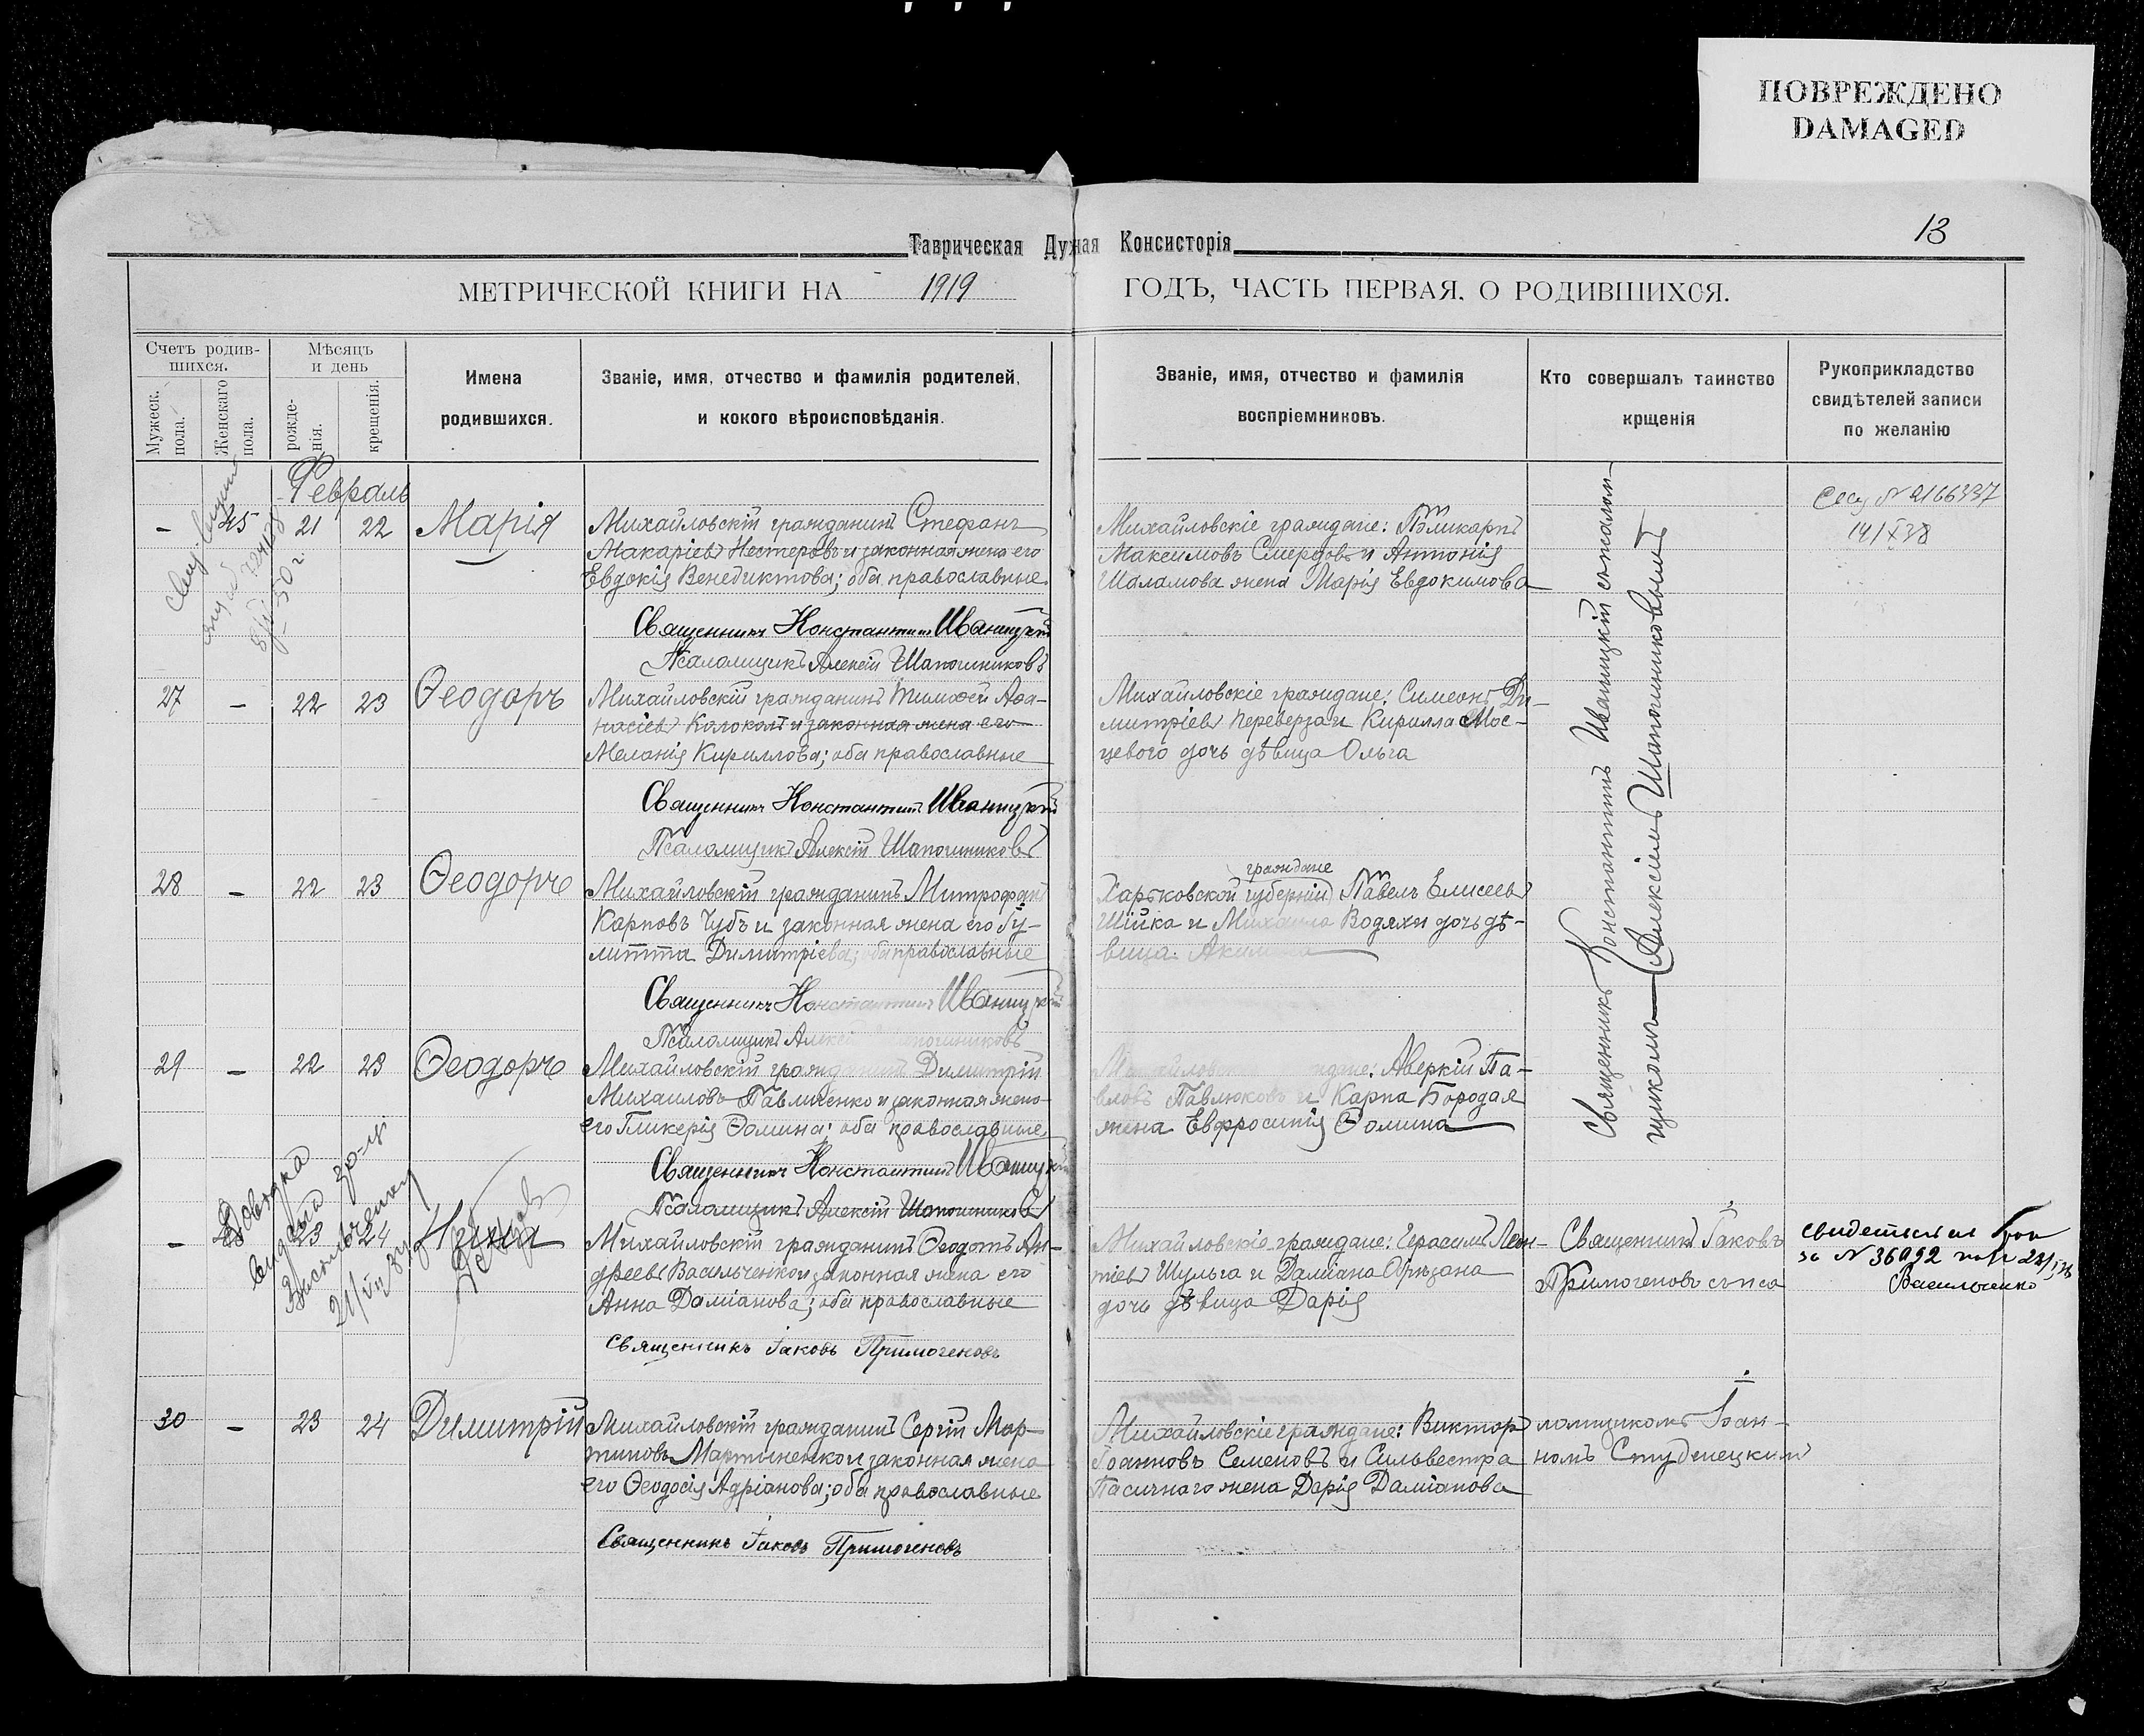 ПОВРЕЖДЕНО
DAMAGED
13
Таврическая Духная Консисторія
МЕТРИЧЕСКОЙ КНИГИ НА 1919 ГОДЪ, ЧАСТЬ ПЕРВАЯ. О РОДИВШИХСЯ.
Счетъ родив-
шихся.
Мужеск.
пола.
Женскаго
пола.
Мѣсяцъ
и день
рожде-
нія.
крещенія.
Имена
родившихся.
Званіе, имя, отчество и фамилія родителей,
и кокого вѣроисповѣданія.
Званіе, имя, отчество и фамилія
воспріемниковъ.
Кто совершалъ таинство
крщенія
Рукоприкладство
свидѣтелей записи
по желанію
Февраль
– 25 21 22 Марія
Михайловскій гражданинъ Стефанъ
Макаріевъ Нестеровъ и законная жена его
Евдокія Венедиктова; оба православные
Священникъ Константинъ Иваницкій
Псаломщикъ Алексій Шапошниковъ
Михайловскіе граждане: Поликарпъ
Максимовъ Смердовъ и Антонія
Шаламова жена Марія Евдокимова
Священникъ Константинъ Иваницкій съ псалом-
щикомъ Алексіемъ Шапошниковымъ
№ 2166337
14/X 38
27 – 22 23 Ѳеодоръ
Михайловскій гражданинъ Тимоѳей Аѳа-
насіевъ Колокотъ и законная жена его
Меланія Кириллова; оба православные
Священникъ Константинъ Иваницкій
Псаломщикъ Алексій Шапошниковъ
Михайловскіе граждане: Симеонъ Ди-
митріевъ Переверза и Кирилла Мос-
цевого дочь дѣвица Ольга
28 – 22 23 Ѳеодоръ
Михайловскій гражданинъ Митрофанъ
Карповъ Чубъ и законная жена его Іу-
литта Димитріева; оба православные
Священникъ Константинъ Иваницкій
Псаломщикъ Алексій Шапошниковъ
граждане
Харьковской губерніи Павелъ Елисеевъ
Шійка и Михаила Водяхи дочь дѣ-
вица
29 – 22 23 Ѳеодоръ
Михайловскій гражданинъ Димитрій
Михаиловъ Павличенко и законная жена
его Гликерія Ѳомина; оба православные
Священникъ Константинъ Иваницкій
Псаломщикъ Алексій Шапошниковъ
Михайловскіе граждане: Аверкій Па-
вловъ Павлюковъ и Карпа Бородая
жена Евфросинія Ѳомина
– 23 24 Нина
Довідка
видана
Васильченку
Михайловскій гражданинъ Ѳеодотъ Ан-
дреевъ Васильченко и законная жена его
Анна Даміанова; оба православные
Священникъ Іаковъ Примогеновъ
Михайловскіе граждане: Герасимъ Леон-
тіевъ Шульга и Даміана Орѣзана
дочь дѣвица Дарія
Священникъ Іаковъ
Примогеновъ съ пса
за № 36992
Васильченко
30 – 23 24 Димитрій
Михайловскій гражданинъ Сергій Мар-
тиновъ Мартыненко и законная жена
его Ѳеодосія Адріанова; оба православные
Священникъ Іаковъ Примогеновъ
Михайловскіе граждане: Викторъ
Іоанновъ Семеновъ и Сильвестра
Пасичнаго жена Дарія Даміанова
ломщикомъ Іоан-
номъ Студенецкимъ